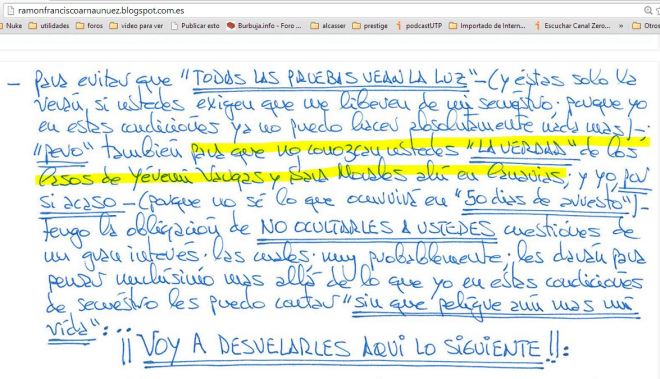 ramonfranciscoarnaunuez.blogspot.com.es
Nuke utilidades foros video para ver Publicar esto Burbuja.info - Foro ... alcasser prestige podcastUTP Importado de Intern... Escuchar Canal Zero... » Otros
- para evitar que "TODAS LAS PRUEBAS VEAN LA LUZ" - (y éstas solo la
verán, si ustedes exigen que me liberen de mi secuestro. porque yo
en estas condiciones ya no puedo hacer absolutamente nada mas) -;
"pero" también para que no conozcan ustedes "LA VERDAD" de los
Casos de Yéremi Vargas y Sara Morales allí en Canarias, y yo por
si acaso - (porque no sé lo que ocurrirá en "50 dias de arresto") -
tengo la obligación de NO OCULTARLES A USTEDES cuestiones de
un gran interés. las cuales. muy probablemente; les darán para
pensar muchísimo mas allá de lo que yo en estas condiciones
de secuestro les puedo contar "sin que peligre aún mas mi
vida": ...
¡¡ VOY A DESVELARLES AQUI LO SIGUIENTE !!: